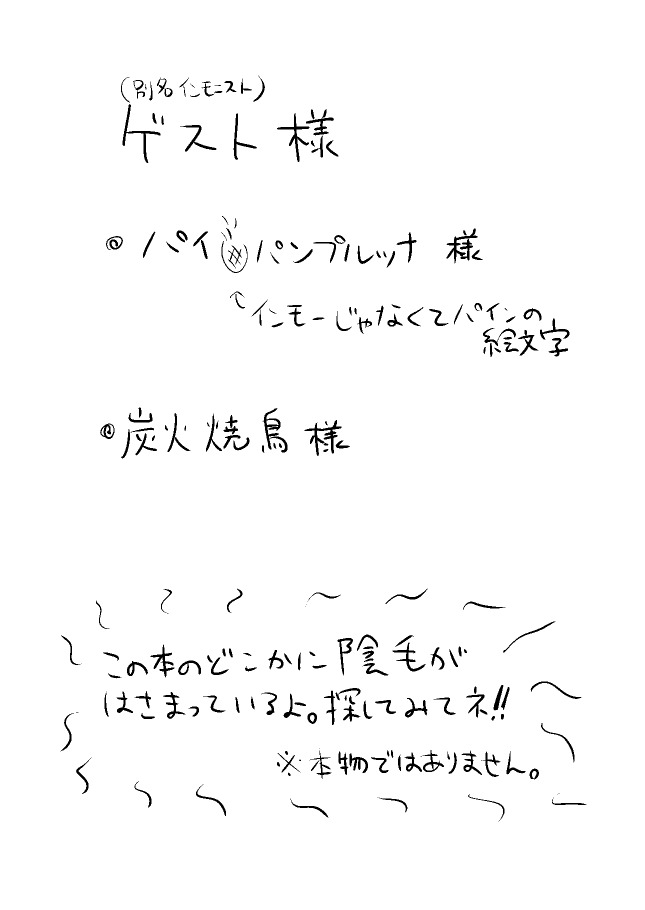 (別名インモニスト)
ゲスト様
◎ パイ🍍パンプルッナ 様
↑インモーじゃなくてパインの
絵文字
◎炭火焼鳥様
この本のどこかに陰毛が
はさまっているよ。探してみてネ!!
※本物ではありません。